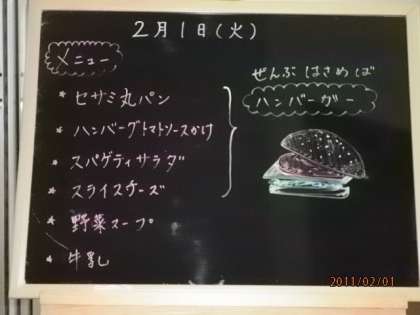 2月1日(火)
メニュー
* セサミ丸パン
* ハンバーグトマトソースかけ
* スパゲティサラダ
* スライスチーズ
* 野菜スープ
* 牛乳
ぜんぶはさめば
ハンバーガー
2011/02/01